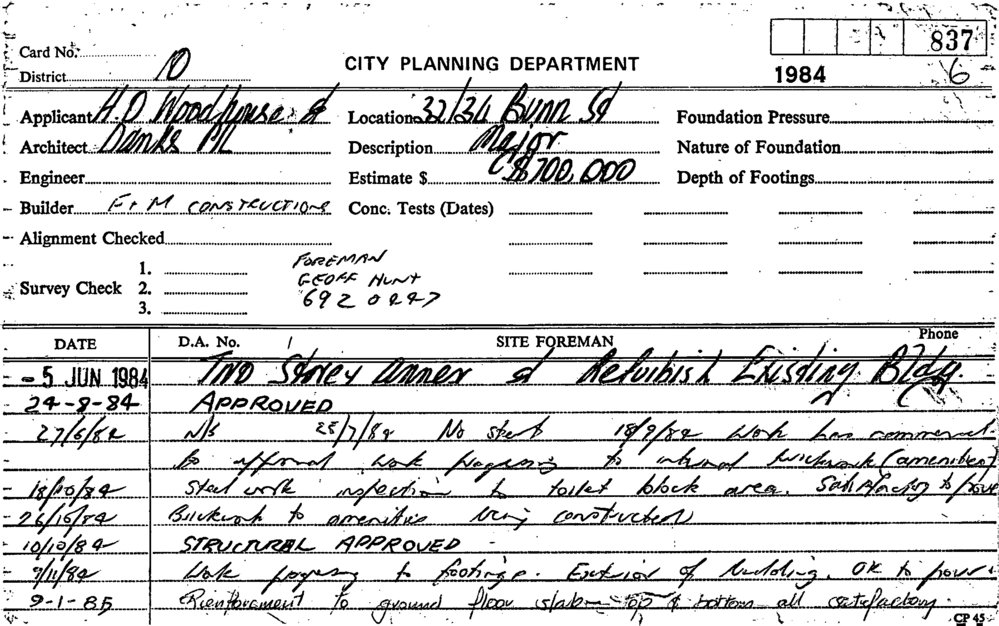 837
Card No.
District 10
CITY PLANNING DEPARTMENT
1984
6
Applicant H.D Woodhouse &
Location 32/34 Bunn St
Foundation Pressure
Architect Danks P/L
Description Major
Nature of Foundation
Engineer
Estimate $ $700,000
Depth of Footings
Builder F + M CONSTRUCTIONS
Conc. Tests (Dates)
Alignment Checked
FOREMAN
1.
GEOFF HUNT
Survey Check 2.
692 0227
3.
DATE D.A. No. SITE FOREMAN Phone
-5 JUN 1984 Two Storey annex & Refurbish Existing Bldg
24-8-84 APPROVED
27/6/84 N/S 25/7/84 No start 18/9/84 Work has commenced
to approval work progressing to internal brickwork (amenities)
18/10/84 Steel work inspection to toilet block area. Satisfactory to pour
26/10/84 Brickwork to amenities being constructed
10/10/84 STRUCTURAL APPROVED
9/11/84 Work progressing to footings. Exterior of building. OK to pour.
9-1-85 Reinforcement to ground floor slab - top & bottom all satisfactory.
CP 45